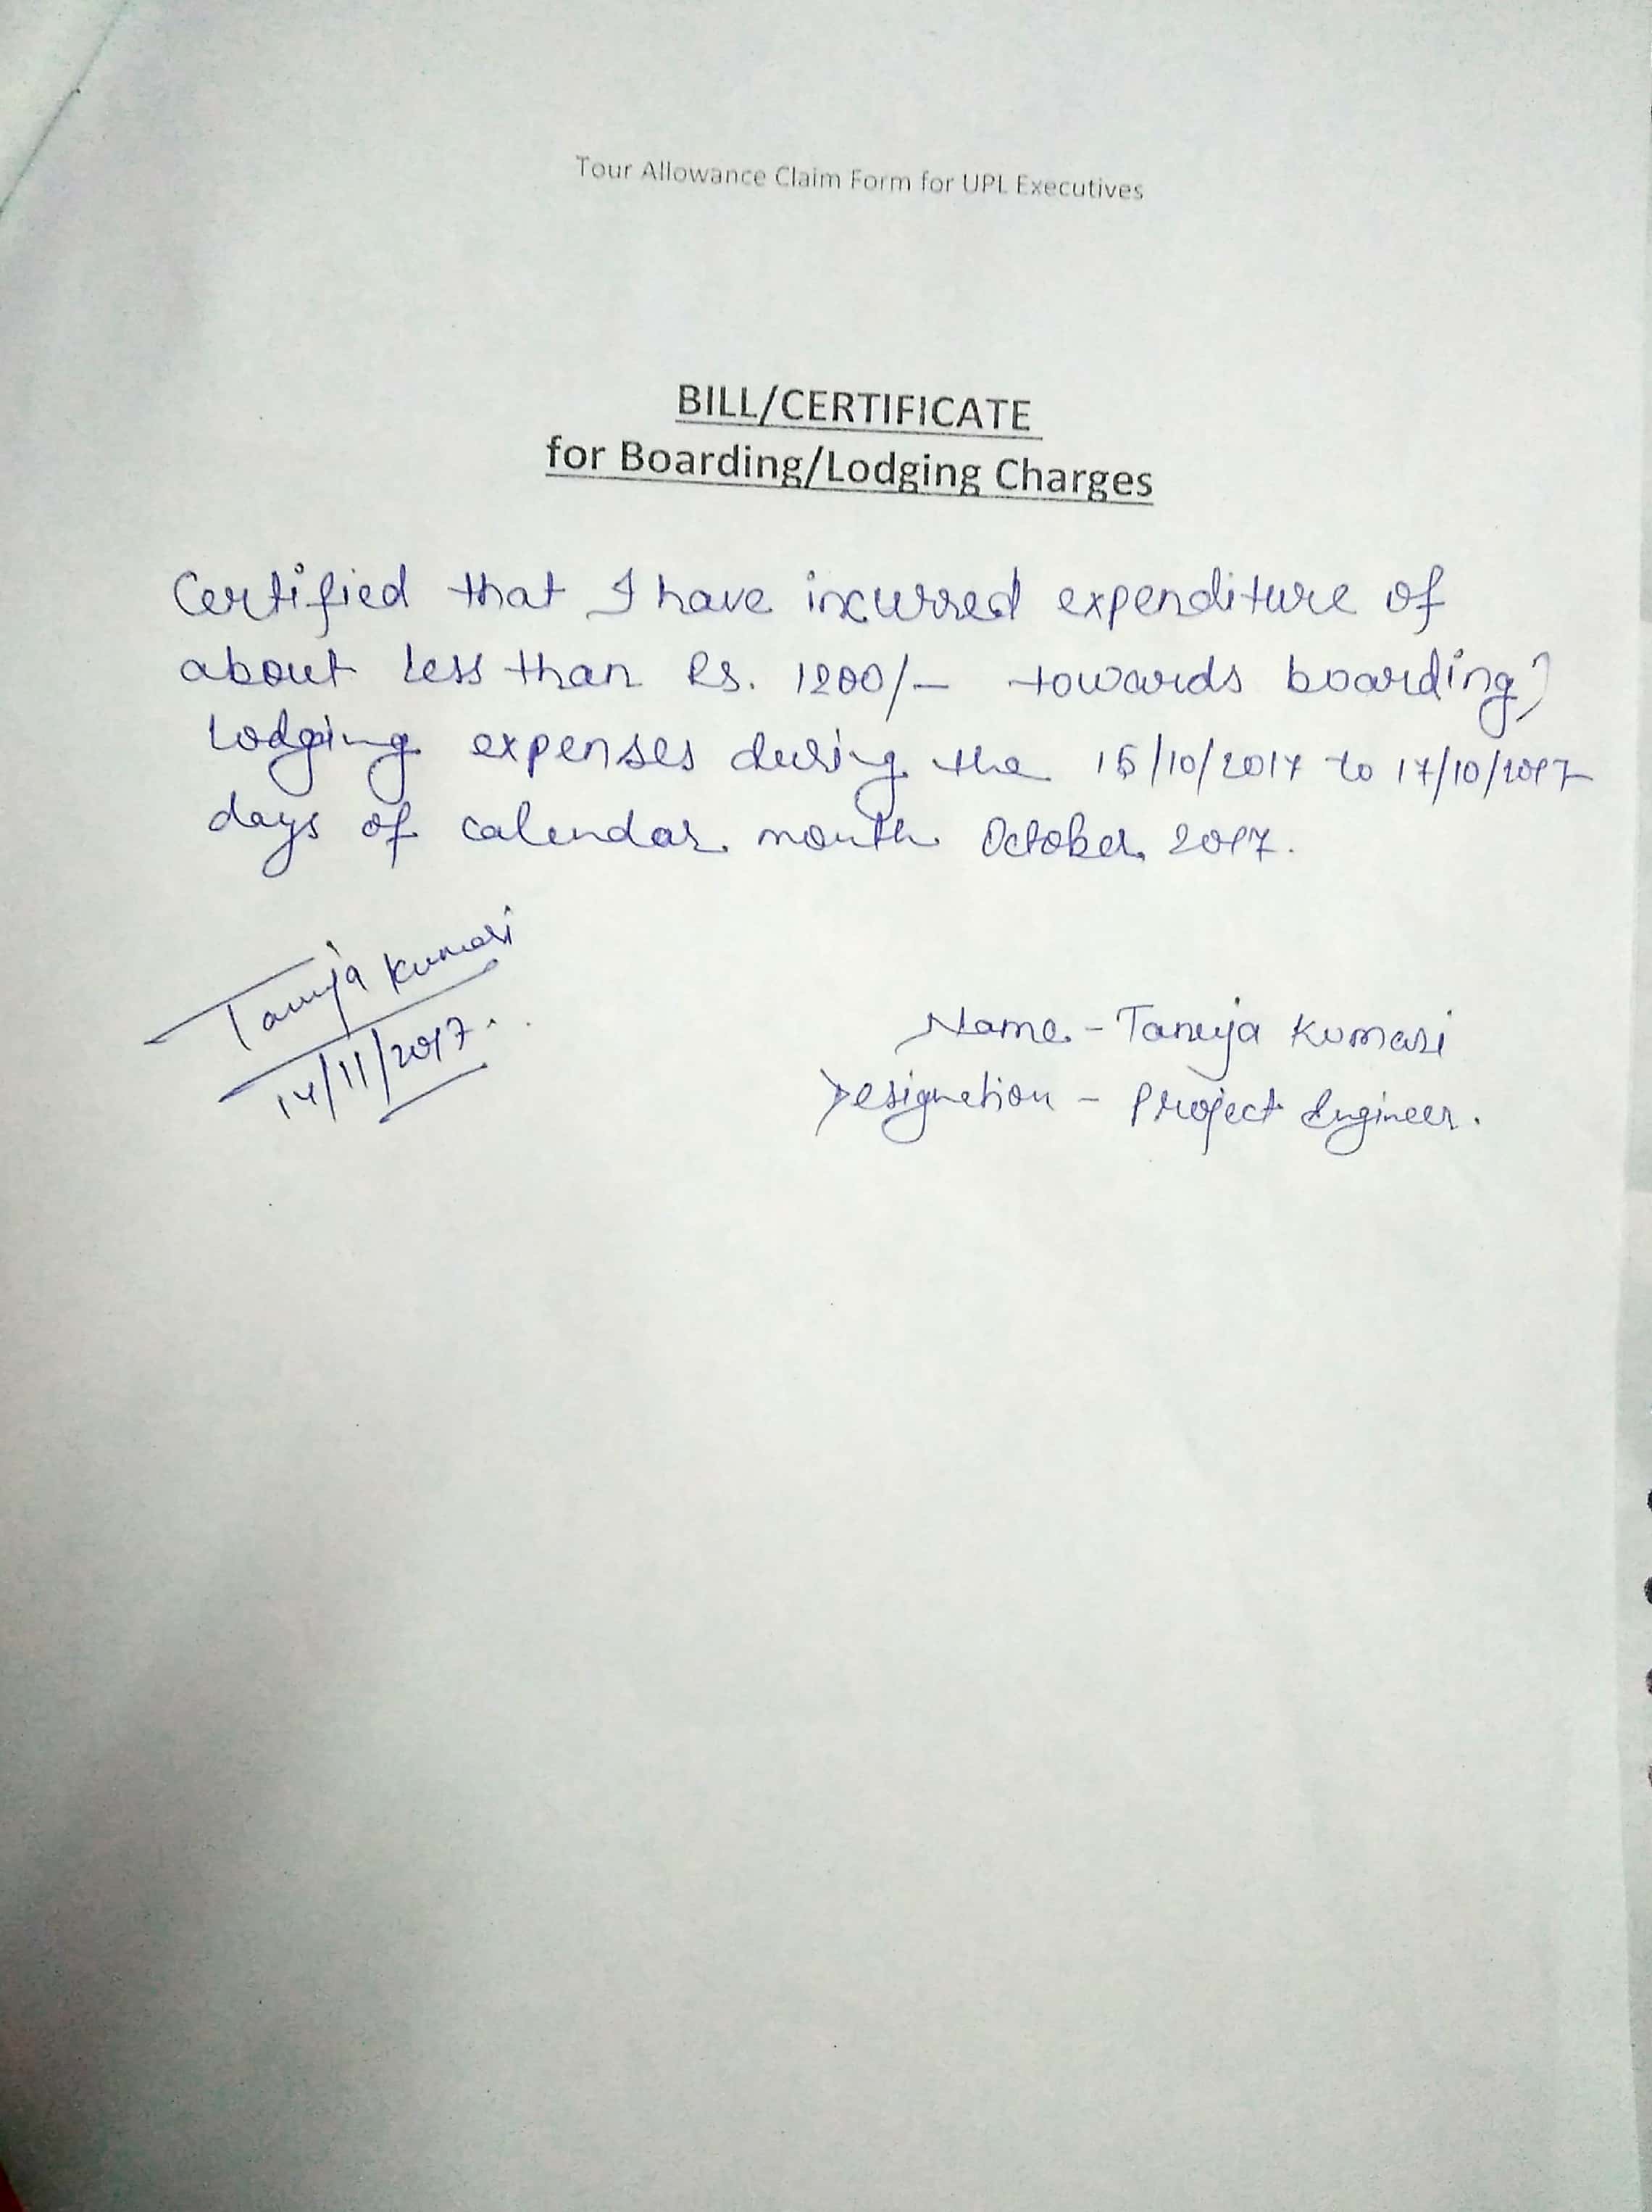 Tour Allowance Claim Form for UPL Executives
BILL/CERTIFICATE
for Boarding/Lodging Charges
Certified that I have incurred expenditure of
about less than Rs. 1200/- towards boarding,
Lodging expenses during the 15/10/2017 to 17/10/2017
days of calendar month October 2017.
Tanuja Kumari
14/11/2017.
Name - Tanuja Kumari
Designation - Project Engineer.